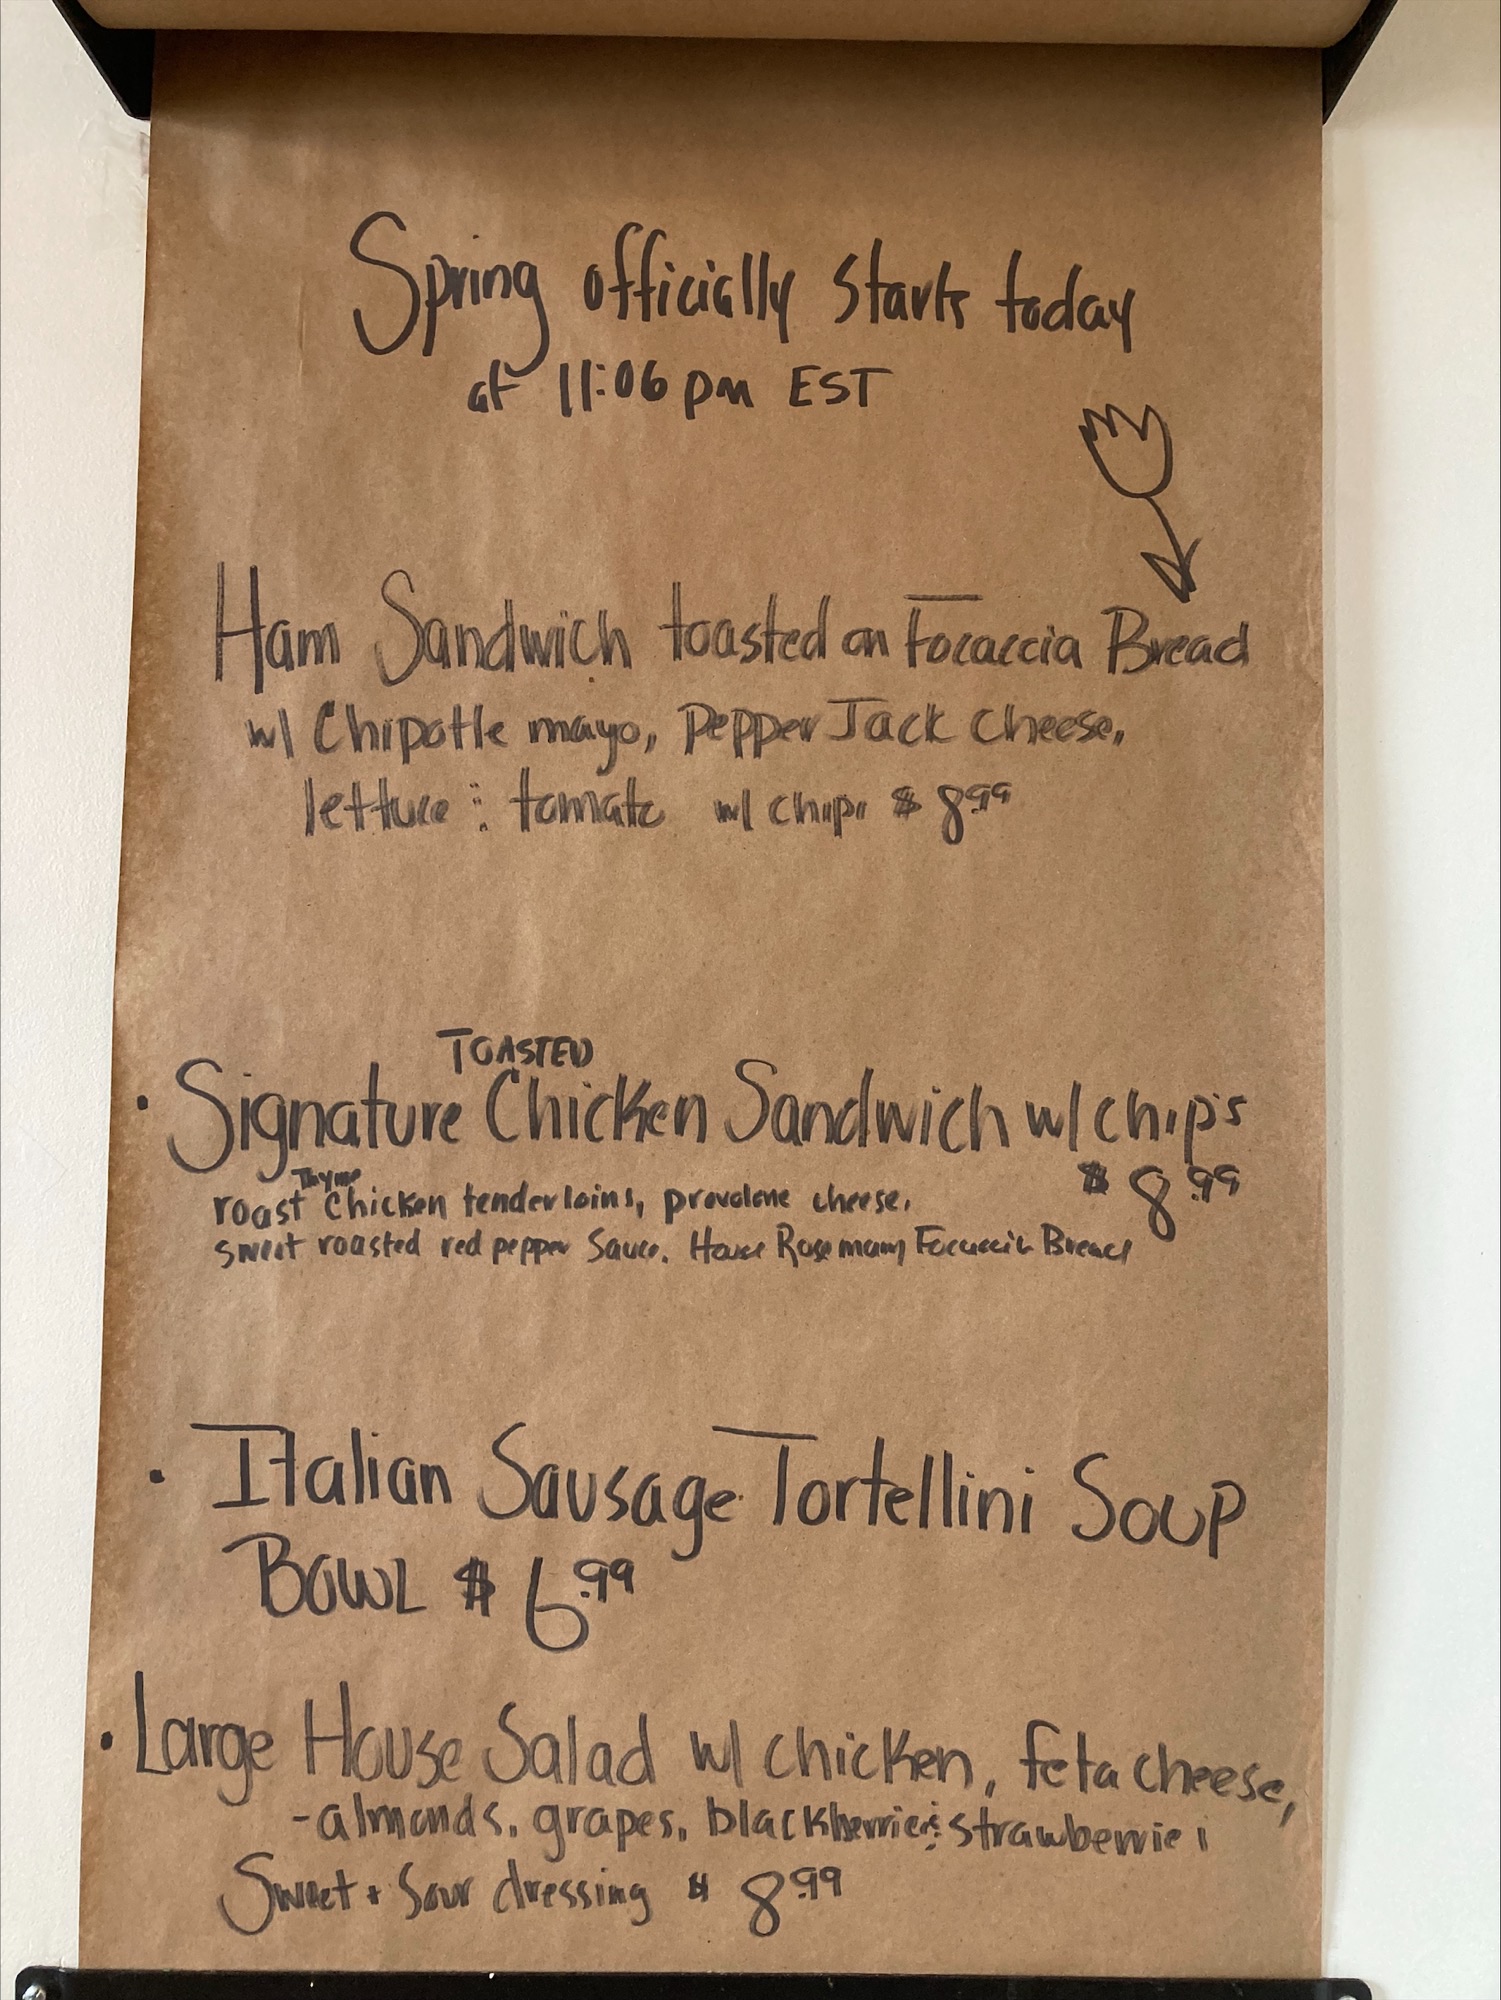 Spring officially starts today
at 11:06 pm EST
Ham Sandwich toasted on Focaccia Bread
w/ Chipotle mayo, Pepper Jack cheese,
lettuce & tomato w/ chips $8.99
TOASTED
• Signature Chicken Sandwich w/ chips
$8.99
Thyme
roast chicken tenderloins, provolone cheese,
sweet roasted red pepper sauce. House Rosemary Focaccia Bread
• Italian Sausage Tortellini Soup
BOWL $6.99
• Large House Salad w/ chicken, feta cheese,
- almonds, grapes, blackberries & strawberries
Sweet + Sour dressing $8.99